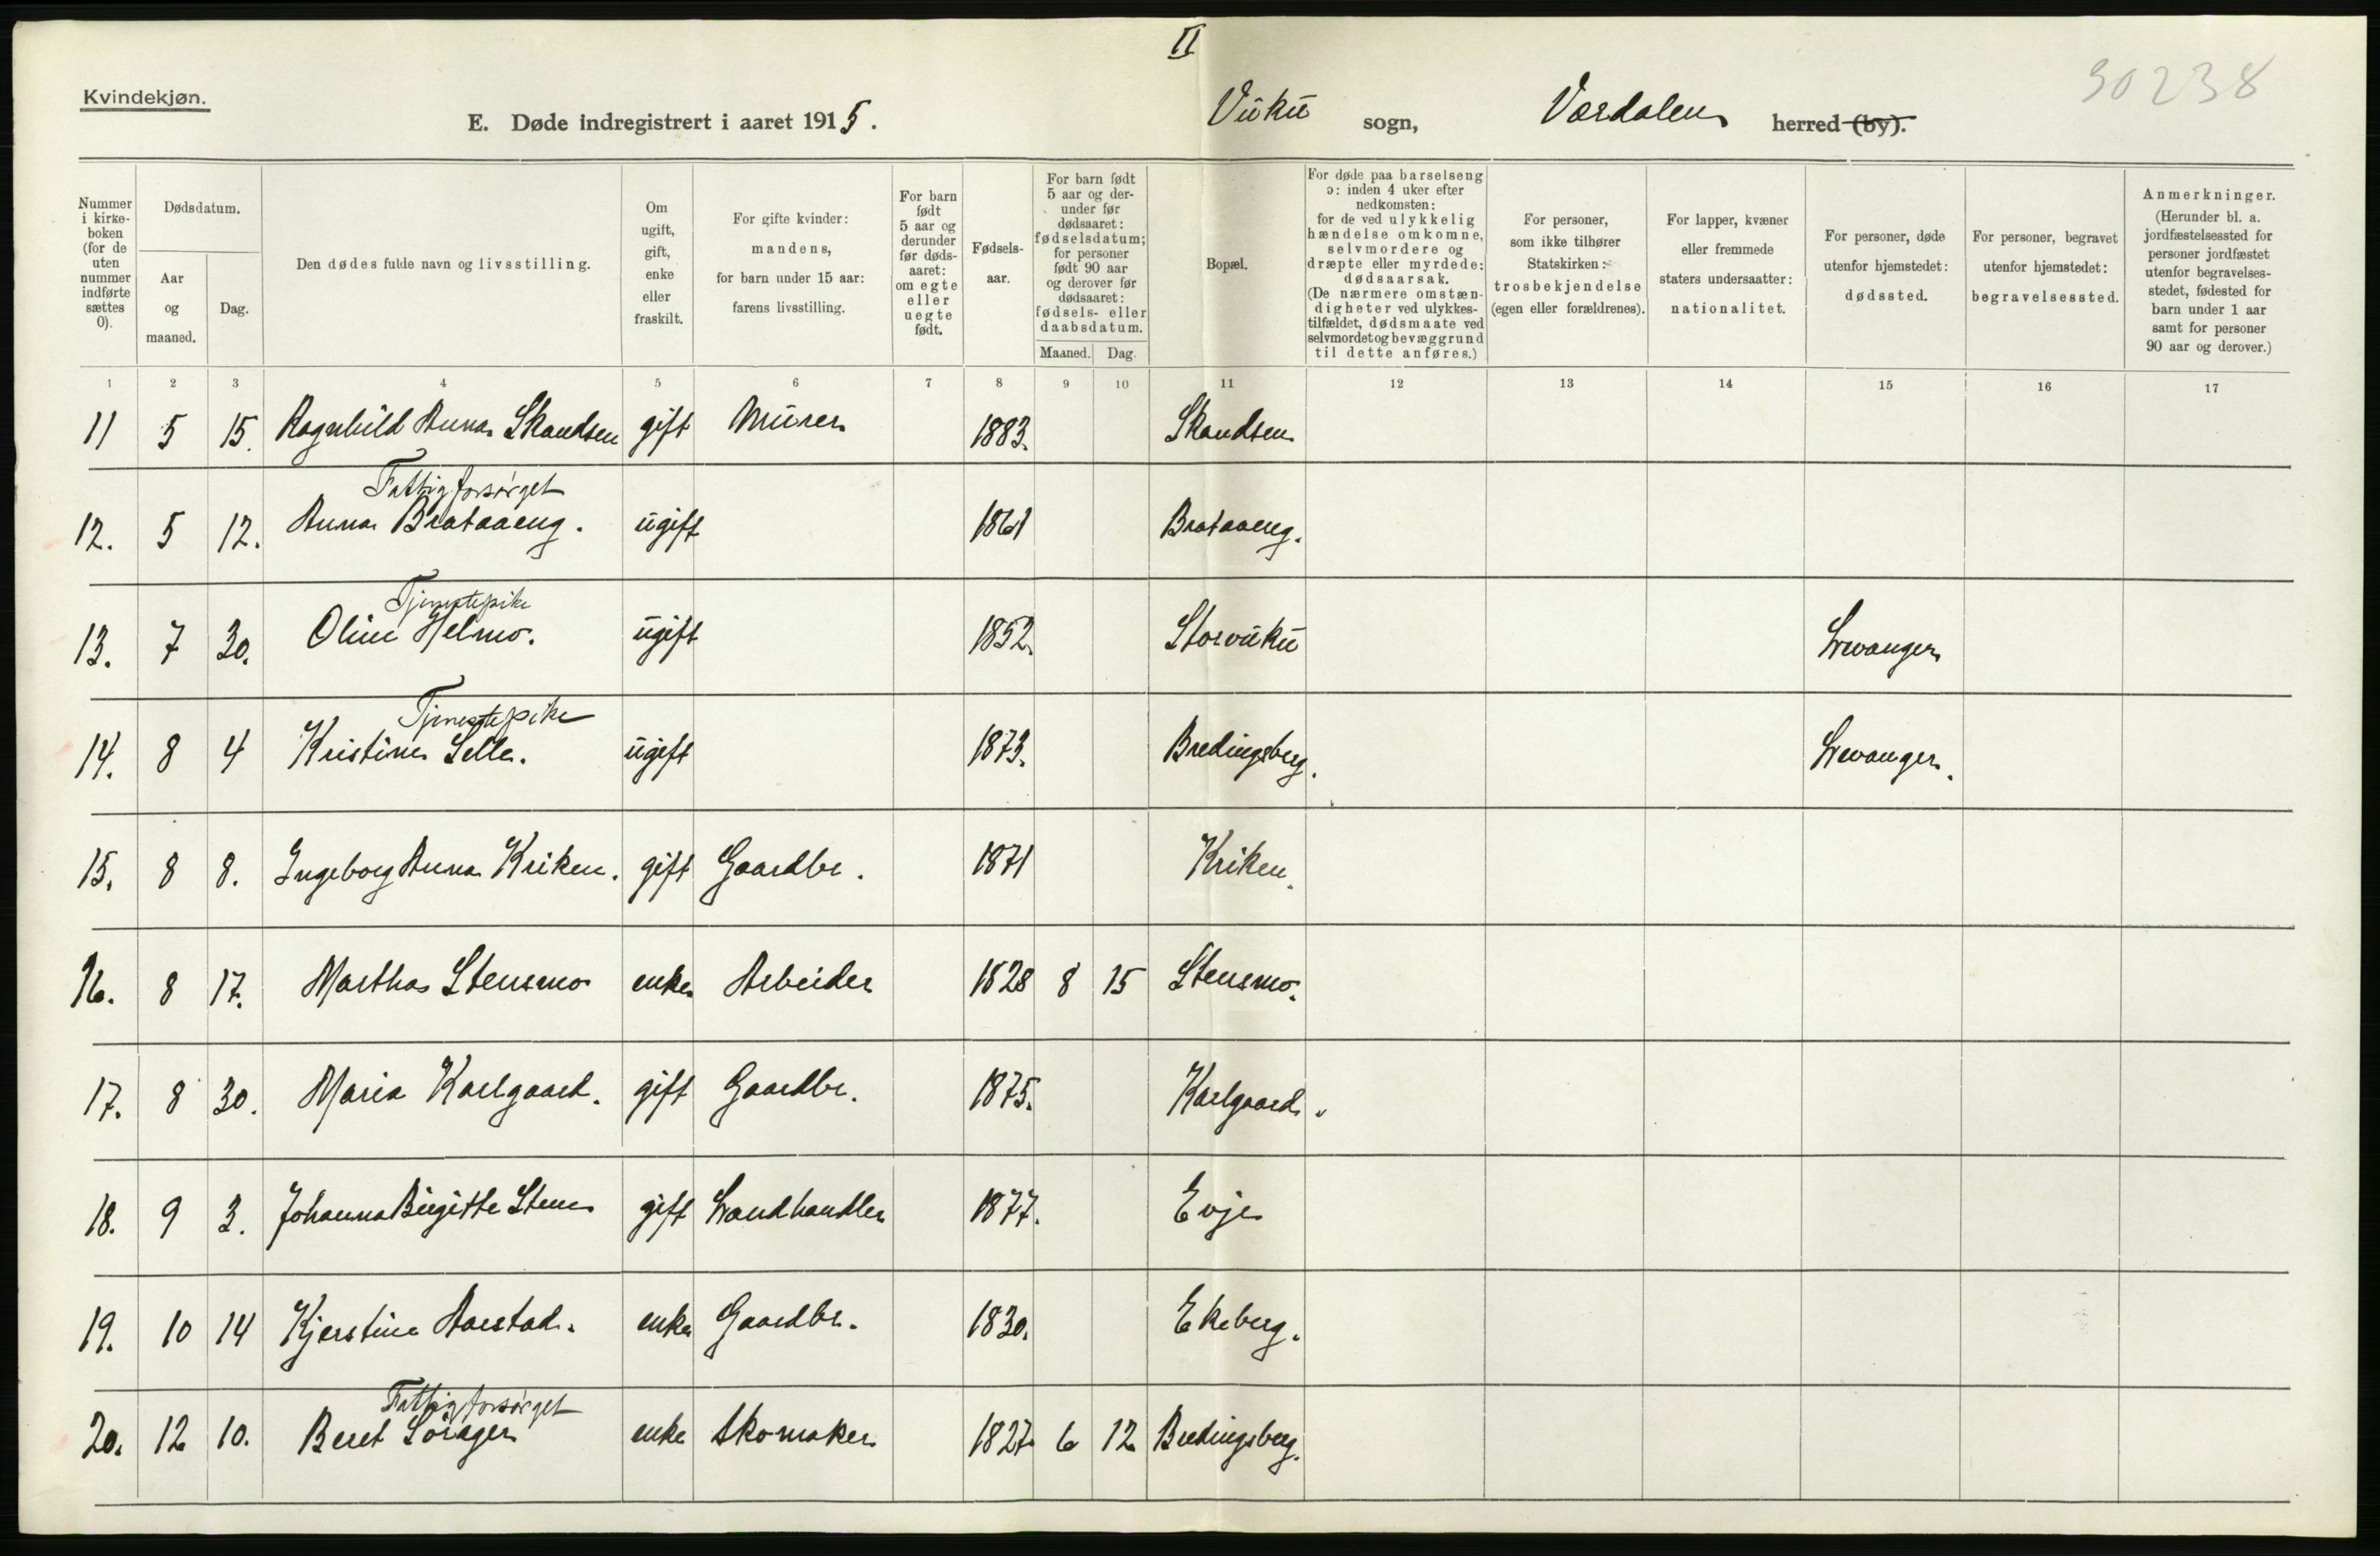 II
30238
Kvindekjøn.
E. Døde indregistrert i aaret 1915. Vuku sogn, Værdalen herred (by).
Nummer i kirkeboken (for de uten nummer indførte sættes 0). | Dødsdatum. Aar og maaned. | Dag. | Den dødes fulde navn og livsstilling. | Om ugift, gift, enke eller fraskilt. | For gifte kvinder: mandens, for barn under 15 aar: farens livsstilling. | For barn født 5 aar og derunder før dødsaaret: om egte eller uegte født. | Fødselsaar. | For barn født 5 aar og derunder før dødsaaret: fødselsdatum; for personer født 90 aar og derover før dødsaaret: fødsels- eller daabsdatum. Maaned. | Dag. | Bopæl. | For døde paa barselseng ɔ: inden 4 uker efter nedkomsten: for de ved ulykkelig hændelse omkomne, selvmordere og dræpte eller myrdede: dødsaarsak. (De nærmere omstændigheter ved ulykkestilfældet, dødsmaate ved selvmordet og bevæggrund til dette anføres.) | For personer, som ikke tilhører Statskirken: trosbekjendelse (egen eller forældrenes). | For lapper, kvæner eller fremmede staters undersaatter: nationalitet. | For personer, døde utenfor hjemstedet: dødssted. | For personer, begravet utenfor hjemstedet: begravelsessted. | Anmerkninger. (Herunder bl. a. jordfæstelsessted for personer jordfæstet utenfor begravelsesstedet, fødested for barn under 1 aar samt for personer 90 aar og derover.)
1 2 3 4 5 6 7 8 9 10 11 12 13 14 15 16 17
11 5 15. Ragnhild Anna Skandsen gift Murer 1883. Skandsen
Fattigforsørget
12. 5 12. Anna Brataaeng. ugift 1861 Brataaeng.
Tjenestepike
13. 7 30. Oline Helmo. ugift 1852. Storvuku Levanger
Tjenestepike
14. 8 4 Kristine Selle. ugift 1873. Bredingsberg. Levanger.
15. 8 8. Ingeborg Anna Kriken. gift Gaardbr. 1871 Kriken.
16. 8 17. Martha Stensmo enke Arbeider 1828 8 15 Stensmo.
17. 8 30. Maria Karlgaard. gift Gaardbr. 1875. Karlgaard.
18. 9 3. Johanna Birgitte Stene gift Landhandler 1877. Evje
19. 10 14 Kjerstine Aarstad. enke Gaardbr. 1830. Ekeberg.
Fattigforsørget
20. 12 10. Beret Sörager enke Skomaker 1827. 6 12 Bredingsberg.